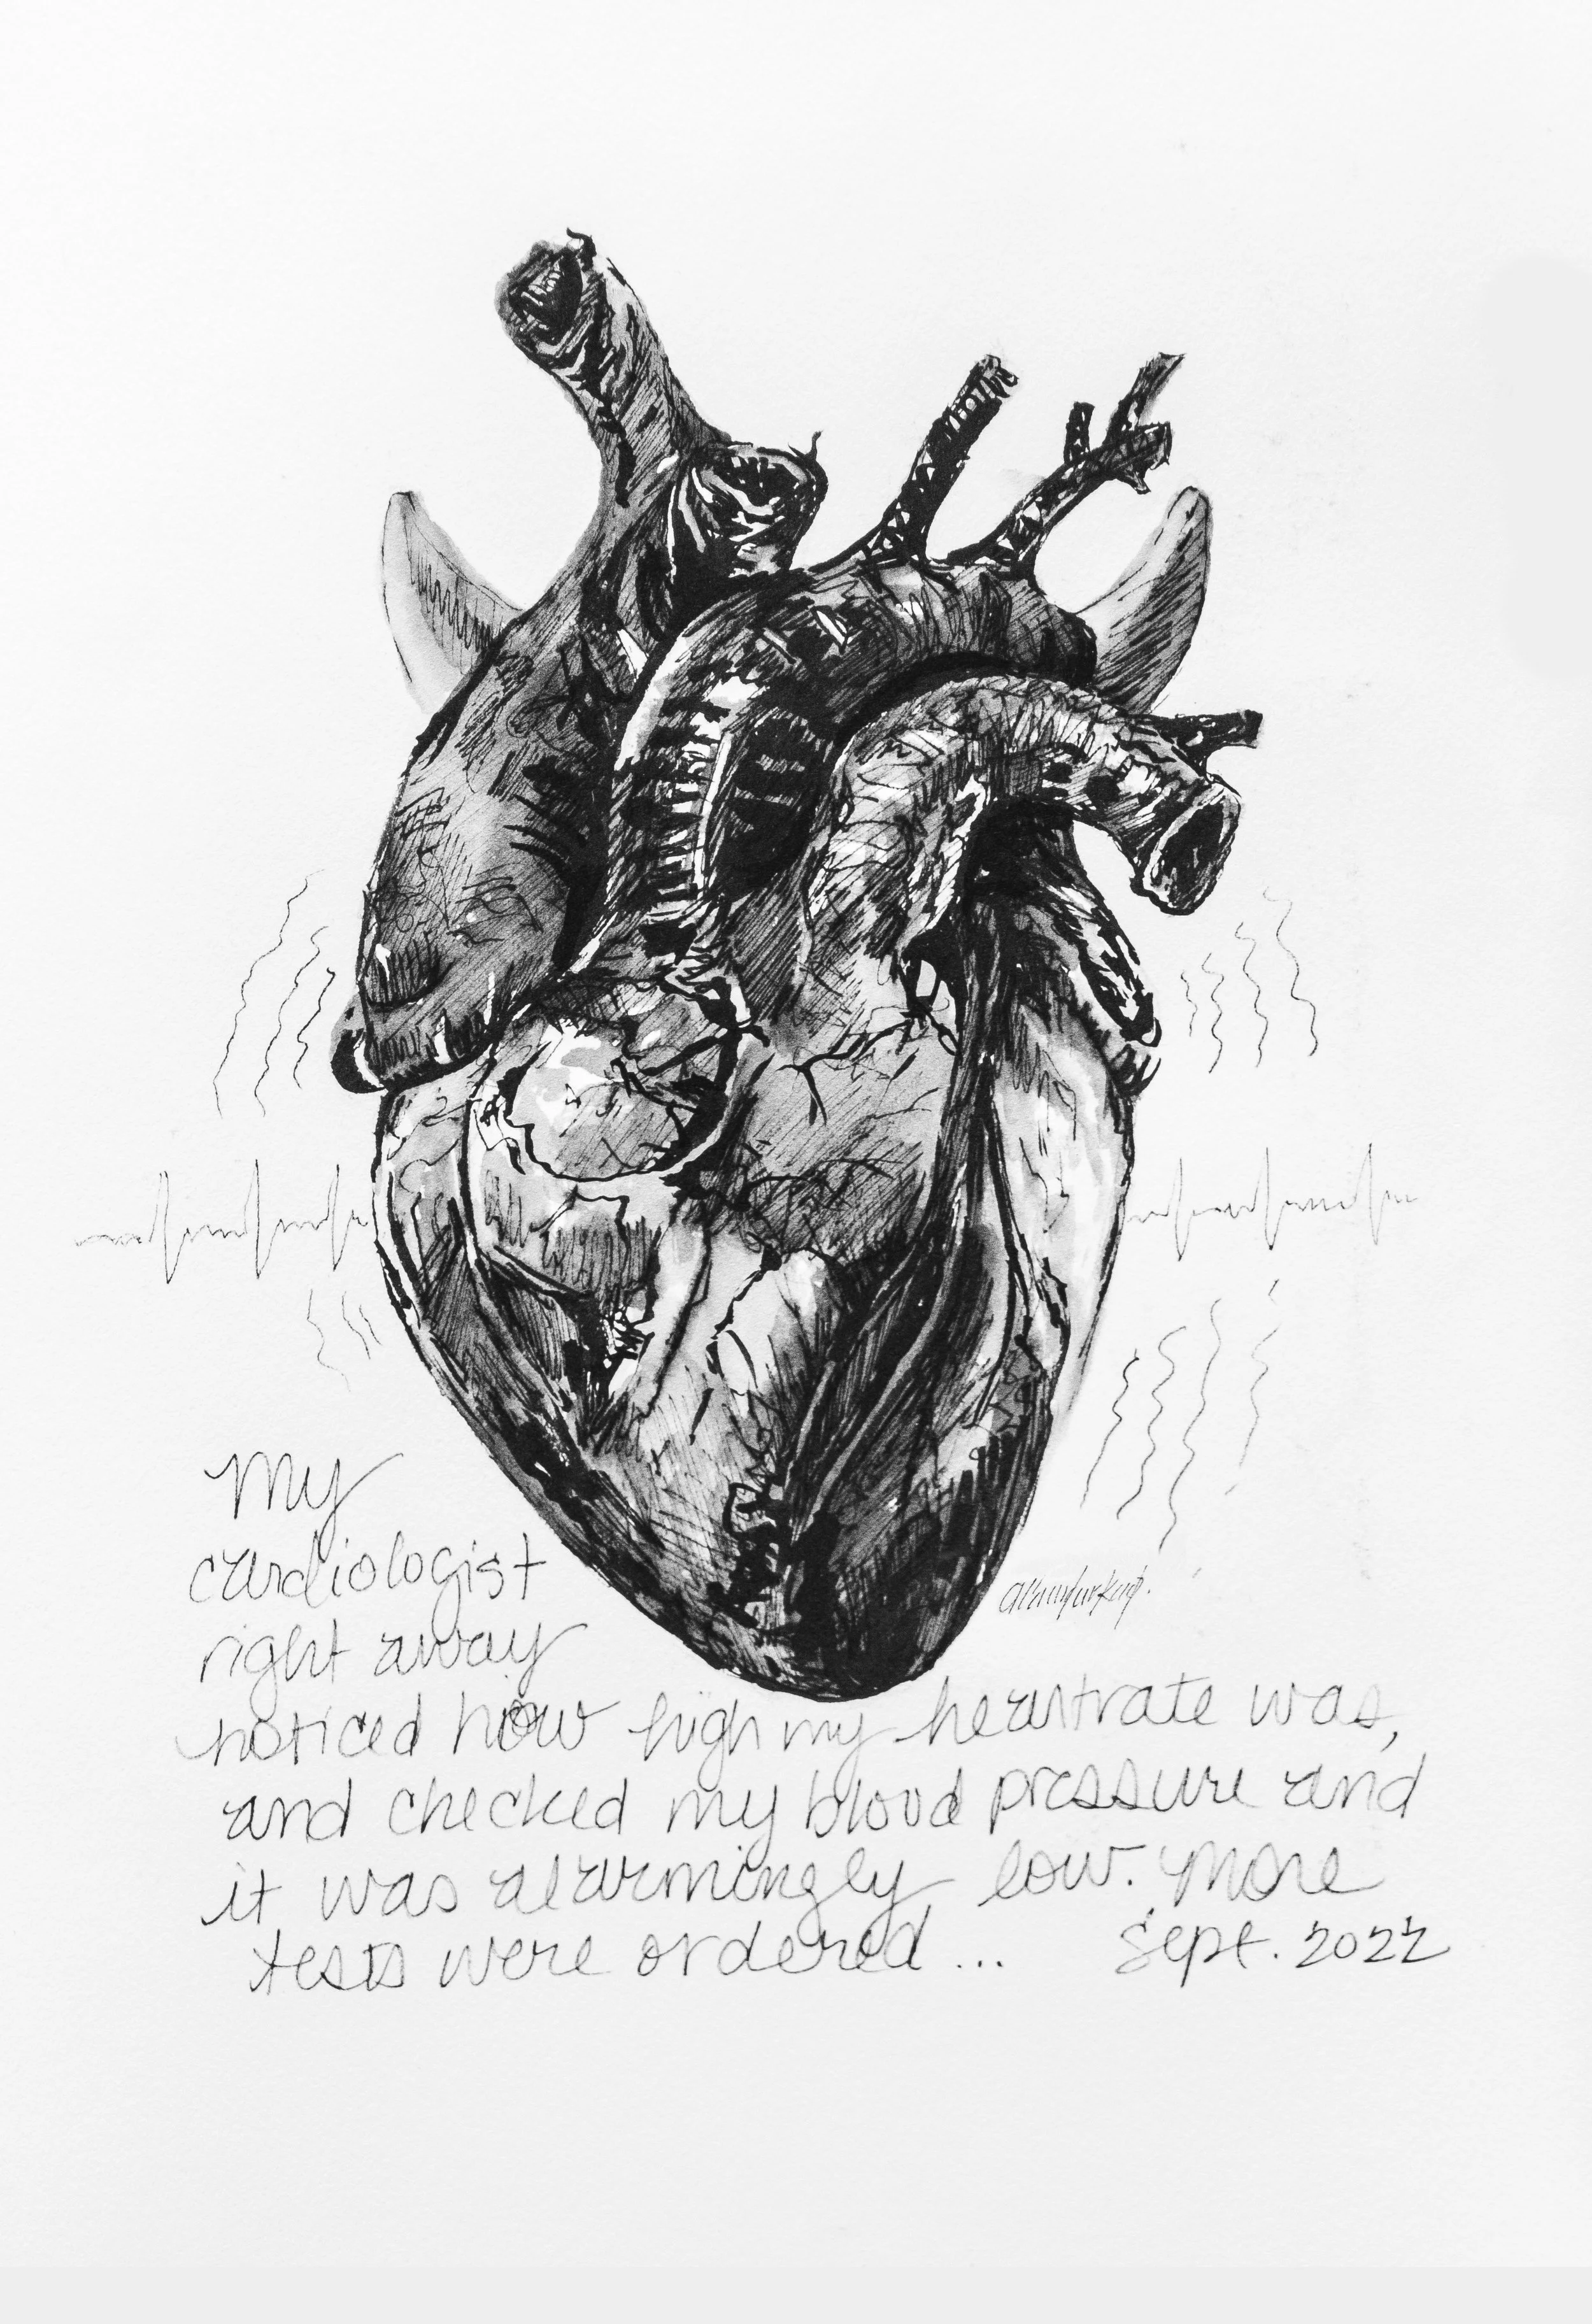 My
cardiologist
right away
noticed how high my heartrate was,
and checked my blood pressure and
it was alarmingly low. More
tests were ordered...
Sept. 2022